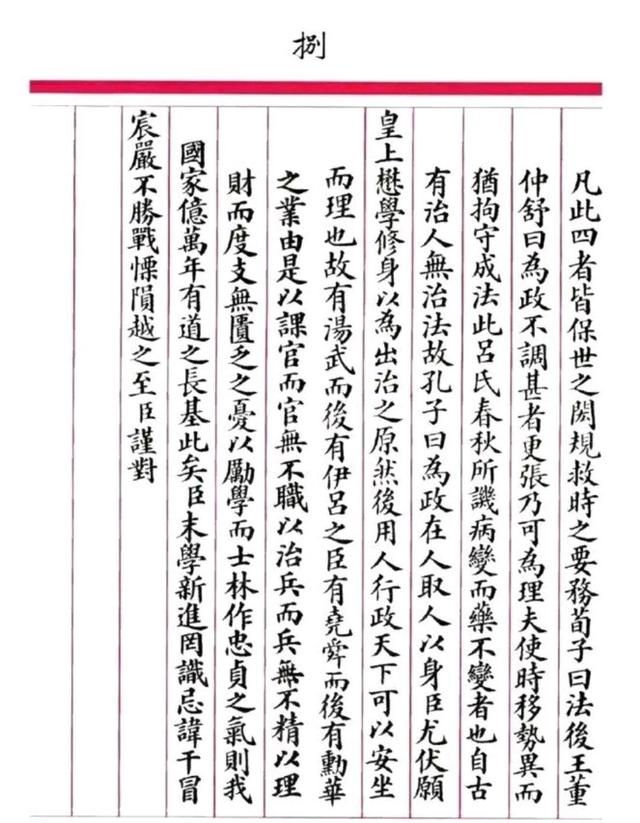 捌
凡此四者皆保世之閎規救時之要務荀子曰法後王董
仲舒曰為政不調甚者更張乃可為理夫使時移勢異而
猶拘守成法此呂氏春秋所譏病變而藥不變者也自古
有治人無治法故孔子曰為政在人取人以身臣尤伏願
皇上懋學修身以為出治之原然後用人行政天下可以安坐
而理也故有湯武而後有伊呂之臣有堯舜而後有勳華
之業由是以課官而官無不職以治兵而兵無不精以理
財而度支無匱乏之憂以勵學而士林作忠貞之氣則我
國家億萬年有道之長基此矣臣末學新進罔識忌諱干冒
宸嚴不勝戰慄隕越之至臣謹對